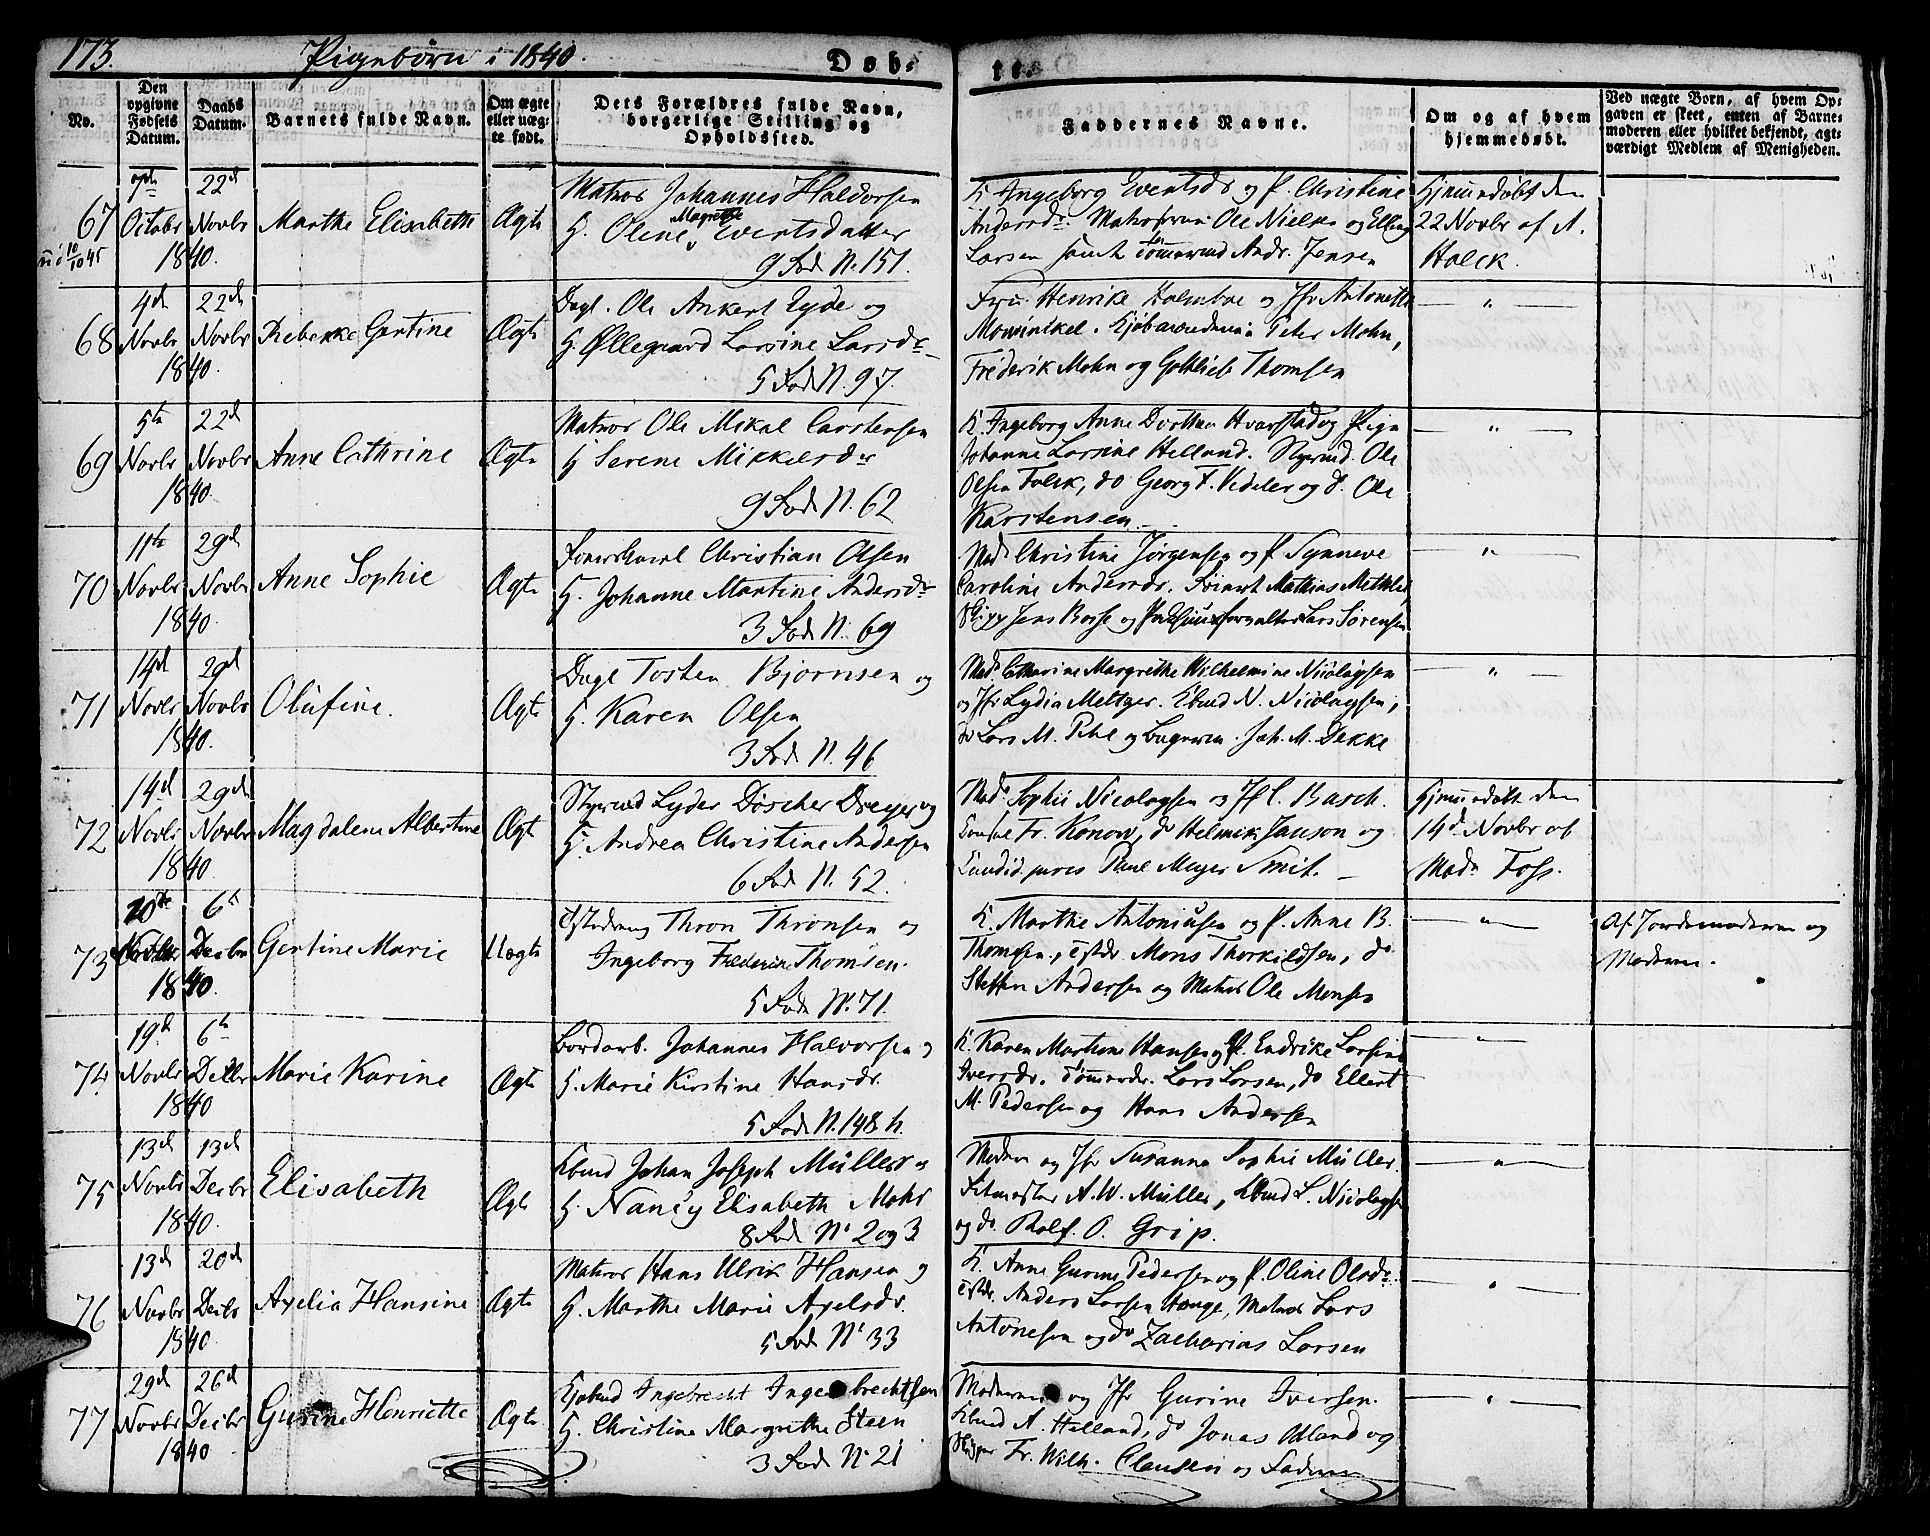 173. Pigebørn i 1840. Døb- te.
No.
Den opgivne Fødsels Datum.
Daabs Datum.
Barnets fulde Navn.
Om ægte eller uægte født.
Dets Forældres fulde Navn, borgerlige Stilling og Opholdssted.
Faddernes Navne.
Om og af hvem hjemmedøbt.
Ved uægte Børn, af hvem Opgaven er skeet, enten af Barnemoderen eller hvilket bekjendt, agtværdigt Medlem af Menigheden.
67
7de Octobr 1840.
22d Novbr
Marthe Elisabeth
Ægte
Matros Johannes Haldorsen
H. Oline Magrethe Evertsdatter
9 Fod N. 151.
K. Ingeborg Evertsdr og P. Christine
Andersdr. Ole Nielsen og Elling
Larsen samt Tømmermd Andr. Jensen
Hjemmedøbt den
22 Novbr af A.
Holck.
68
4d Novbr 1840.
22d Novbr
Rebekke Gertine
Ægte
Dagl. Ole Ankert Eyde og
H. Øllegaard Larsine Larsdr
5 Fod N. 97
Fru Henrike Holmboe og Jfr Antonette
Mowinkel. Kjøbmændene Peter Mohn,
Frederik Mohn og Gottlieb Thomsen
"
69
5te Novbr 1840.
22d Novbr
Anne Cathrine
Ægte
Matros Ole Mikal Carstensen
H Serene Mikkelsdr
9 Fod N. 62
K. Ingeborg Anne Dorthea Hvarstad og Pige
Johanne Larsine Helland. Styrmd. Ole
Olsen Falck, do Georg F. Vedeler og d. Ole
Karstensen
"
70
11te Novbr 1840.
29d Novbr
Anne Sophie
Ægte
Christian Olsen
H. Johanne Martine Andersdr
3 Fod N. 69
Mad Christine Jørgensen og P. Synneve
Caroline Andersdr. Mathias Methlie,
Jens Borse og Lars Sørensen
"
71
14d Novbr 1840.
29d Novbr
Olufine.
Ægte
Dagl Tosten Bjørnsen og
H. Karen Olsen
3 Fod N. 46
Mad Cathrine Margrethe Wilhelmine Nicolaysen
og Jfr Lydia Meltzer. Kbmd N. Nicolaysen,
do Lars M. Pihl og Joh. M. Dekke
"
72
14d Novbr 1840.
29d Novbr
Magdalene Albertine
Ægte
Styrmd Lyder Döscher Dreyer og
H. Andrea Christine Andersen
6 Fod N. 52.
Mad Sophie Nicolaysen og Jf C. Basch.
Fr. Konow, do Helmik Janson og
Candid. juris Paul Meyer Smit.
Hjemmedøbt den
14d Novbr af
Mad. Foss.
73
Novbr 1840.
6te Decbr
Gertine Marie
Uægte
Thron Thronsen og
Ingeborg Frederike Thomsen.
5 Fod N. 71.
K. Marthe Antoniusen og P. Anne B.
Thomsen, Mons Thorkildsen, do
Steffen Andersen og Matros Ole Monsen
"
Af Jordemoderen og
Moderen.
74
19d Novbr 1840
6te Decbr
Marie Karine
Ægte
Johannes Halvorsen og
H. Marie Kirstine Hansdr.
5 Fod N. 148 h.
K. Karen Martine Hansen og P. Endrike Larsine
Iversdr. Tømmerdr. Lars Larsen, do Ellert
M. Pedersen og Hans Andersen
"
75
13d Novbr 1840.
13d Decbr
Elisabeth
Ægte
Kbmd Johan Joseph Müller og
H. Nancy Elisabeth Mohr
8 Fod No 2 og 3
Moderen og Jfr Susanne Sophie Müller.
A. W. Müller, Kbmd L. Nicolaysen
og do Rolf. O. Grip.
"
76
13d Novbr 1840.
20d Decbr
Axelia Hansine
Ægte
Matros Hans Ulrik Hansen og
H. Marthe Marie Axelsdr.
5 Fod No 33
K. Anne Gurine Pedersen og P. Oline Olsdr.
Anders Larsen Hauge, Matros Lars
Antonesen og do Zacharias Larsen
"
77
29d Novbr 1840
26d Decbr
Gurine Henriette
Ægte
Kjøbmd Ingebrecht Ingebrechtsen
H. Christine Margrethe Steen
3 Fod No 21
Moderen og Jfr Gurine Iversen.
Kbmd A. Helland, do Jonas Udland og
Fr. Wilh. Clausen og Faderen
"